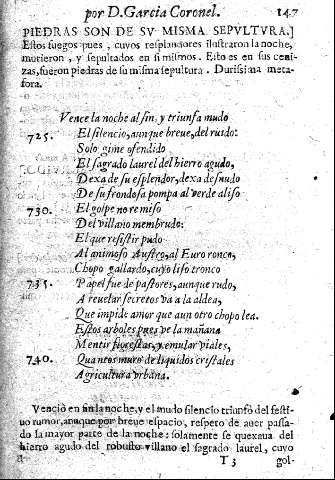 por D. Garcia Coronel. 147
PIEDRAS SON DE SV MISMA SEPVLTVRA.]
Estos fuegos pues, cuyos resplandores ilustraron la noche,
murieron, y sepultados en si mismos. Esto es en sus ceni-
zas, fueron piedras de su misma sepultura. Durissima meta-
fora.
Vence la noche al fin, y triunfa mudo
725. El silencio, aunque breue, del ruido:
Solo gime ofendido
El sagrado laurel del hierro agudo,
Dexa de su esplendor, dexa desnudo
De su frondosa pompa al verde aliso
730. El golpe no remiso
Del villano membrudo:
El que resistir pudo
Al animoso Austro, al Euro ronco,
Chopo gallardo, cuyo liso tronco
735. Papel fue de pastores, aunque rudo,
A reuelar secretos va a la aldea,
Que impide amor que aun otro chopo lea.
Estos arboles pues ve la mañana
Mentir florestas, y emular viales,
740. Quantos muro de liquidos cristales
Agricultura vrbana.
Venciò en fin la noche, y el mudo silencio triunfó del festi-
uo rumor, aunque por breue espacio, respeto de auer passa-
do la mayor parte de la noche: solamente se quexaua del
hierro agudo del robusto villano el sagrado laurel, cuyo
T 3 gol-